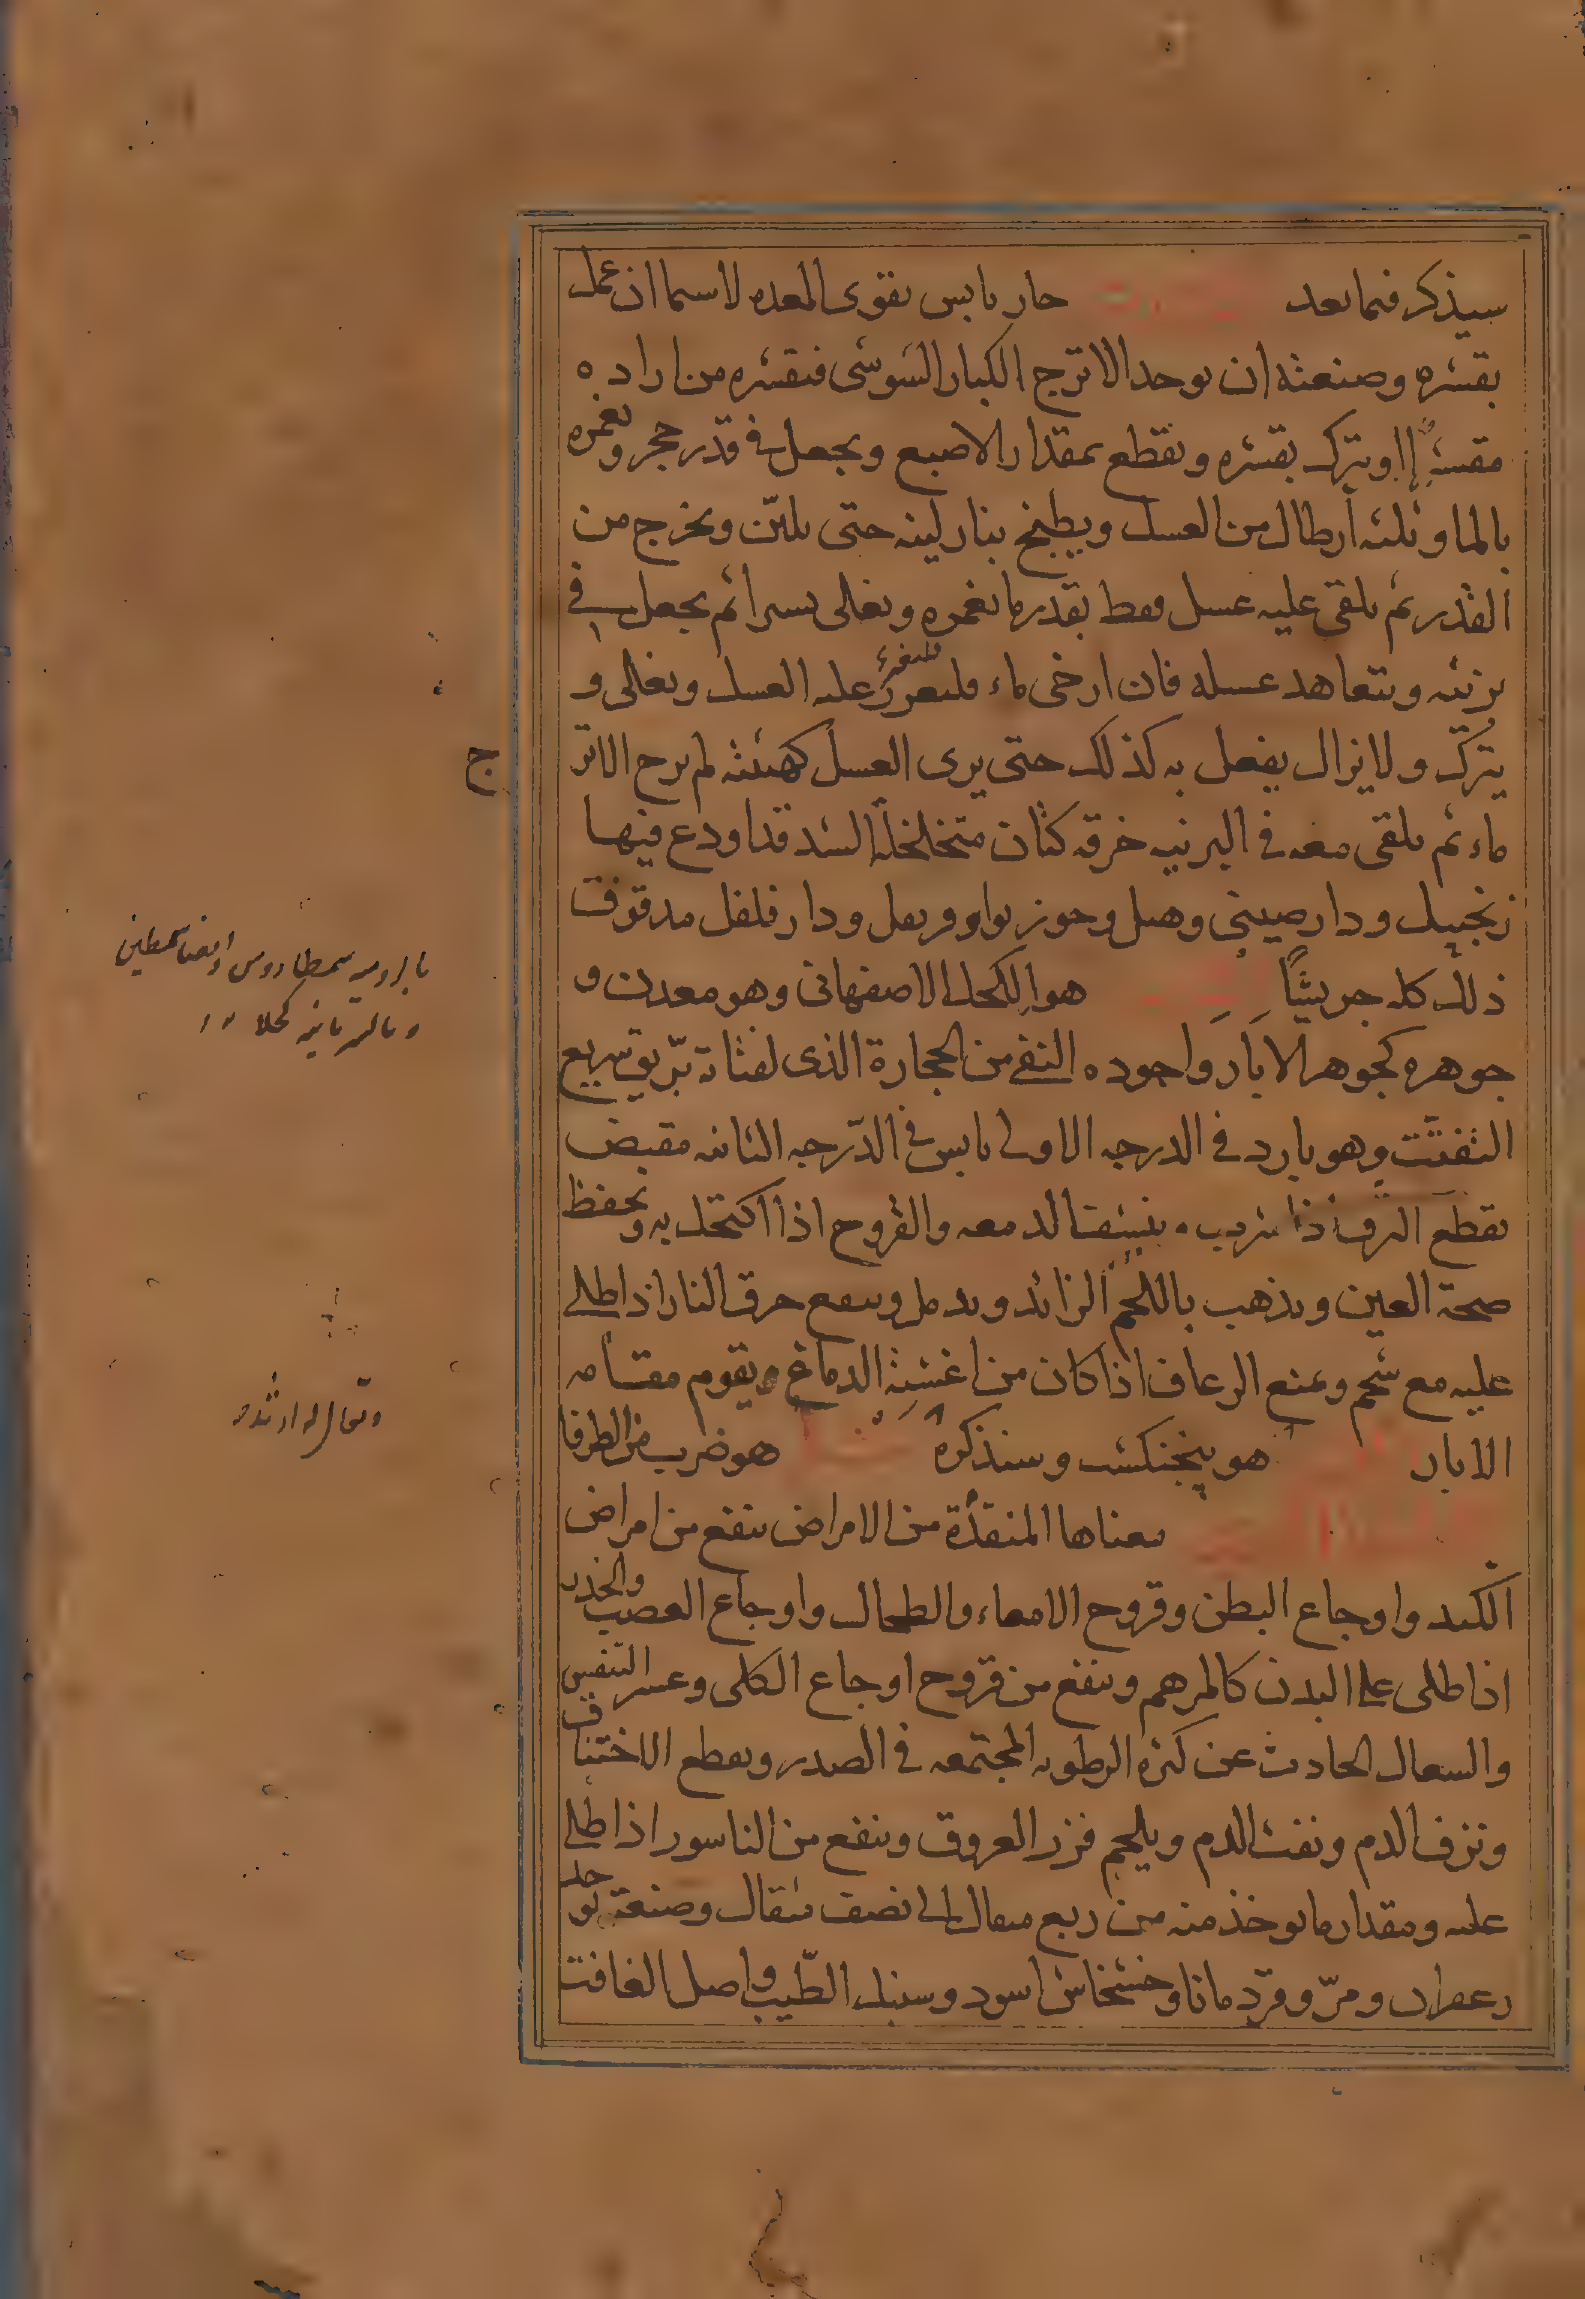 سيذكر فيما بعد حار يابس يقوى المعده لاسيما ان عمل
بقشره وصنعته ان يوخد الاترج الكبار السوسى فيقشره من اراده
مقشرا او يترك بقشره ويقطع بمقدار الاصبع ويجعل فى قدر حجر ويغمره
بالما وثلثه أرطال من العسل ويطبخ بنار لينه حتى يلين ويخرج من
القدر ثم يلقى عليه عسل فقط بقدر ما يغمره ويغالى يسيرا ثم يجعل فى
برنيه ويتعاهد عسله فان ارخى ماء فليعزز عليه العسل ويغالى و
يترك ولا يزال يفعل به كذلك حتى يرى العسل كهيئته لم يرح الاتر
ج
ماء ثم يلقى معه فى البرنيه خرقه كتان متخلخله الشد قد اودع فيها
زنجبيل ودار صينى وهيل وجوز بوا وقرنفل ودار فلفل مدقوق
ذلك كله جريشًا هو الكحل الاصفهانى وهو معدن و
جوهره كجوهر الابار واجوده النقى من الحجارة الذى لفتاته بريق سريع
التفتت وهو بارد فى الدرجه الاولى يابس فى الدرجه الثانيه مقبض
يقطع النزف اذا شرب وينشف الدمعه والقروح اذا اكتحل به ويحفظ
صحة العين ويذهب باللحم الزائد ويدمل وينفع حرق النار اذا طلى
عليه مع شحم ويمنع الرعاف اذا كان من اغشية الدماغ ويقوم مقامه
الابار هو پنجنكشت وسنذكره هو ضرب من الطرفا
معناها المنقذة من الامراض ينفع من امراض
الكبد واوجاع البطن وقروح الامعاء والطحال واوجاع العصب والخدر
اذا طلى على البدن كالمرهم وينفع من قروح اوجاع الكلى وعسر التنفس
والسعال الحادث عن كثره الرطوبه المجتمعه فى الصدر ويقطع الاختناق
ونزف الدم ونفث الدم ويلحم فزر العروق وينفع من الناسور اذا طلى
عليه ومقدار ما يوخذ منه من ربع مثقال الى نصف مثقال وصنعته يوخد
زعفران ومرّ وقردمانا وخشخاش اسود وسنبل الطيب واصل الغافت